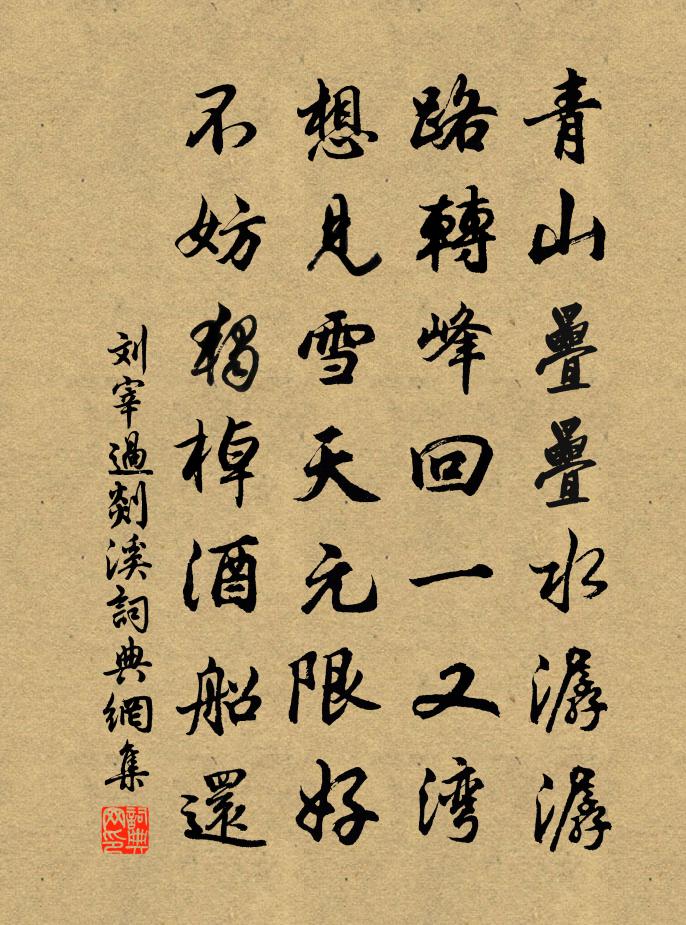 青山疊疊水潺潺
路轉峰回一又湾
想見雪天元限好
不妨獨棹酒船還
刘宰過剡溪詞典網集
詞典网印